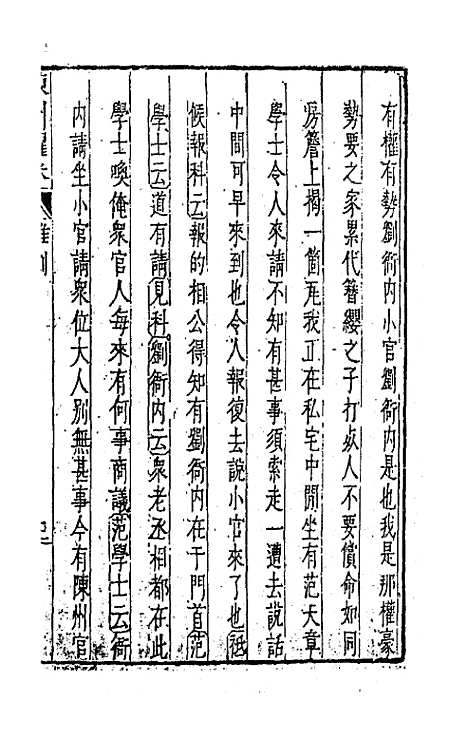 有權有勢劉衙内小官劉衙内是也我是那權豪
勢要之家累代簪纓之子打死人不要償命如同
房簷上揭一箇瓦我正在私宅中閒坐有范天章
學士令人來請不知有甚事須索走一遭去說話
中間可早來到也令人報復去說小官來了也祗
候報科云報的相公得知有劉衙内在于門首范
學士云道有請見科劉衙内云衆老丞相都在此
學士喚俺衆官人每來有何事商議范學士云衙
内請坐小官請衆位大人別無甚事今有陳州官